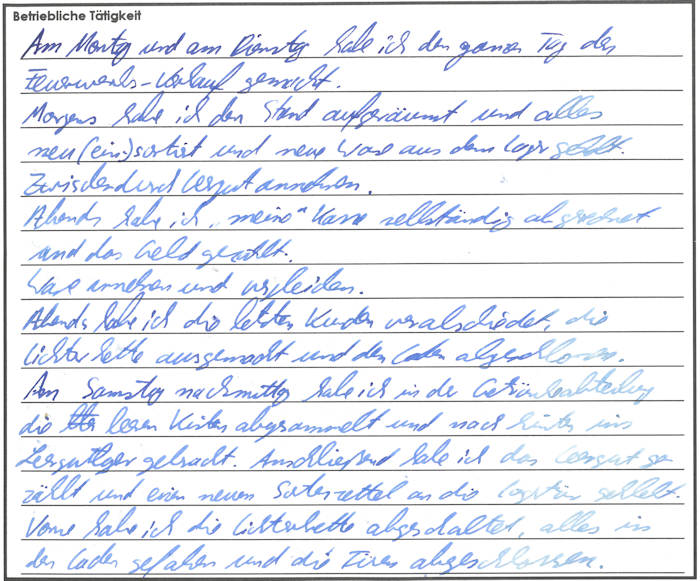 Betriebliche Tätigkeit
Am Montag und am Dienstag habe ich den ganzen Tag den
Feuerwerks-Verkauf gemacht.
Morgens habe ich den Stand aufgeräumt und alles
neu (ein)sortiert und neue Ware aus dem Lager geholt.
Zwischendurch Leergut annehmen.
Abends habe ich "meine" Kasse selbständig abgerechnet
und das Geld gezählt.
Ware annehmen und vergleichen.
Abends habe ich die letzten Kunden verabschiedet, die
Lichterkette ausgemacht und den Laden abgeschlossen.
Am Samstag nachmittag habe ich in der Getränkeabteilung
die leeren Kisten abgesammelt und nach hinten ins
Leergutlager gebracht. Anschließend habe ich das Leergut ge-
zählt und einen neuen an die geklebt.
Vorne habe ich die Lichterkette abgeschaltet, alles in
den Laden gefahren und die Türen abgeschlossen.